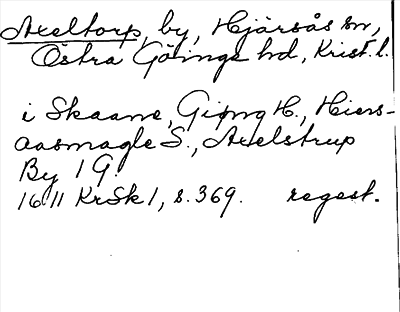 Axeltorp, by, Hjärsås sn,
Östra Göinge hd, Krist. l.
i Skaane, Giøng H., Hiers-
aasmagle S., Axelstrup
By 1 G.
1611 KrSk 1, s. 369. regest.